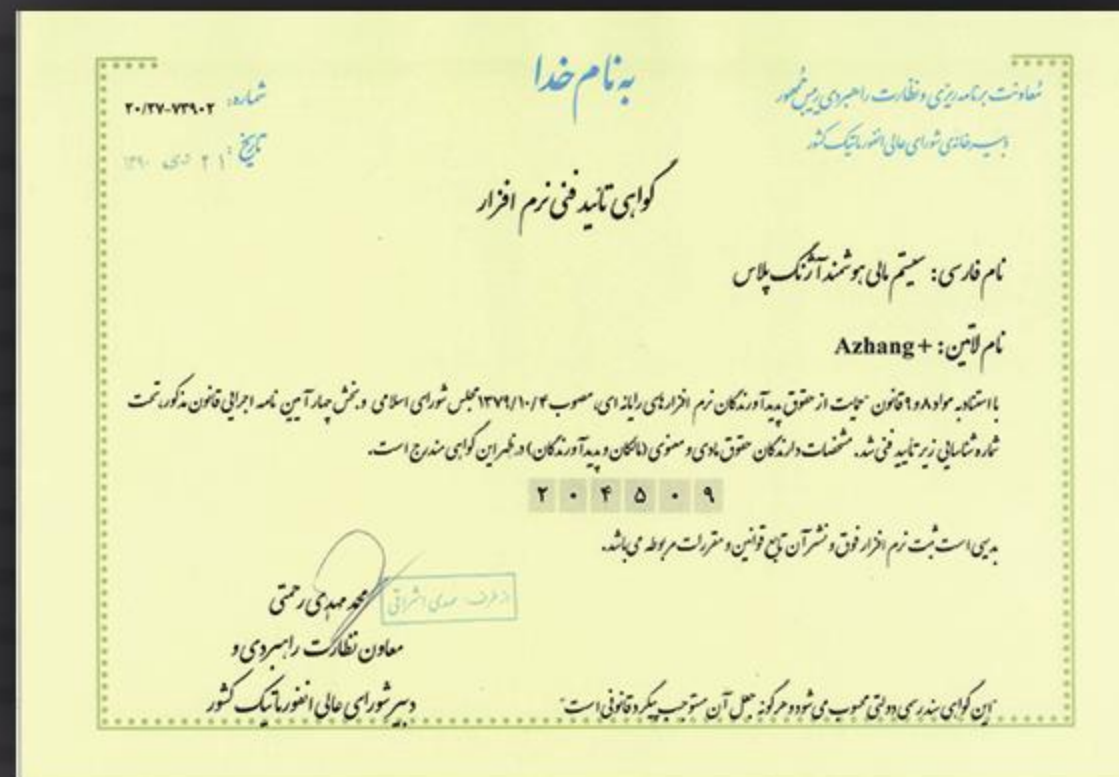 به نام خدا
معاونت برنامه ریزی و نظارت راهبردی رییس جمهور
دبیرخانه‌ی شورای عالی انفورماتیک کشور
شماره: ۲۰/۲۷-۷۳۹۰۲
تاریخ: ۲۱ دی ۱۳۹۰
گواهی تائید فنی نرم افزار
نام فارسی: سیستم مالی هوشمند آژنگ پلاس
نام لاتین: Azhang+
با استناد به مواد ۸ و ۹ قانون حمایت از حقوق پدیدآورندگان نرم افزارهای رایانه ای، مصوب ۱۳۷۹/۱۰/۴ مجلس شورای اسلامی و بخش چهار آیین نامه اجرایی قانون مذکور، تحت
شماره شناسایی زیر تأیید فنی شد. مشخصات دارندگان حقوق مادی و معنوی (مالکان و پدیدآورندگان) در ظهر این گواهی مندرج است.
۲ ۰ ۴ ۵ ۰ ۹
بدیهی است ثبت نرم افزار فوق و نشر آن تابع قوانین و مقررات مربوطه می باشد.
از طرف مهدی اشراقی
محمد مهدی رحمتی
معاون نظارت راهبردی و
دبیر شورای عالی انفورماتیک کشور
"این گواهی سند رسمی دولتی محسوب می شود و هرگونه جعل آن مستوجب پیگرد قانونی است"